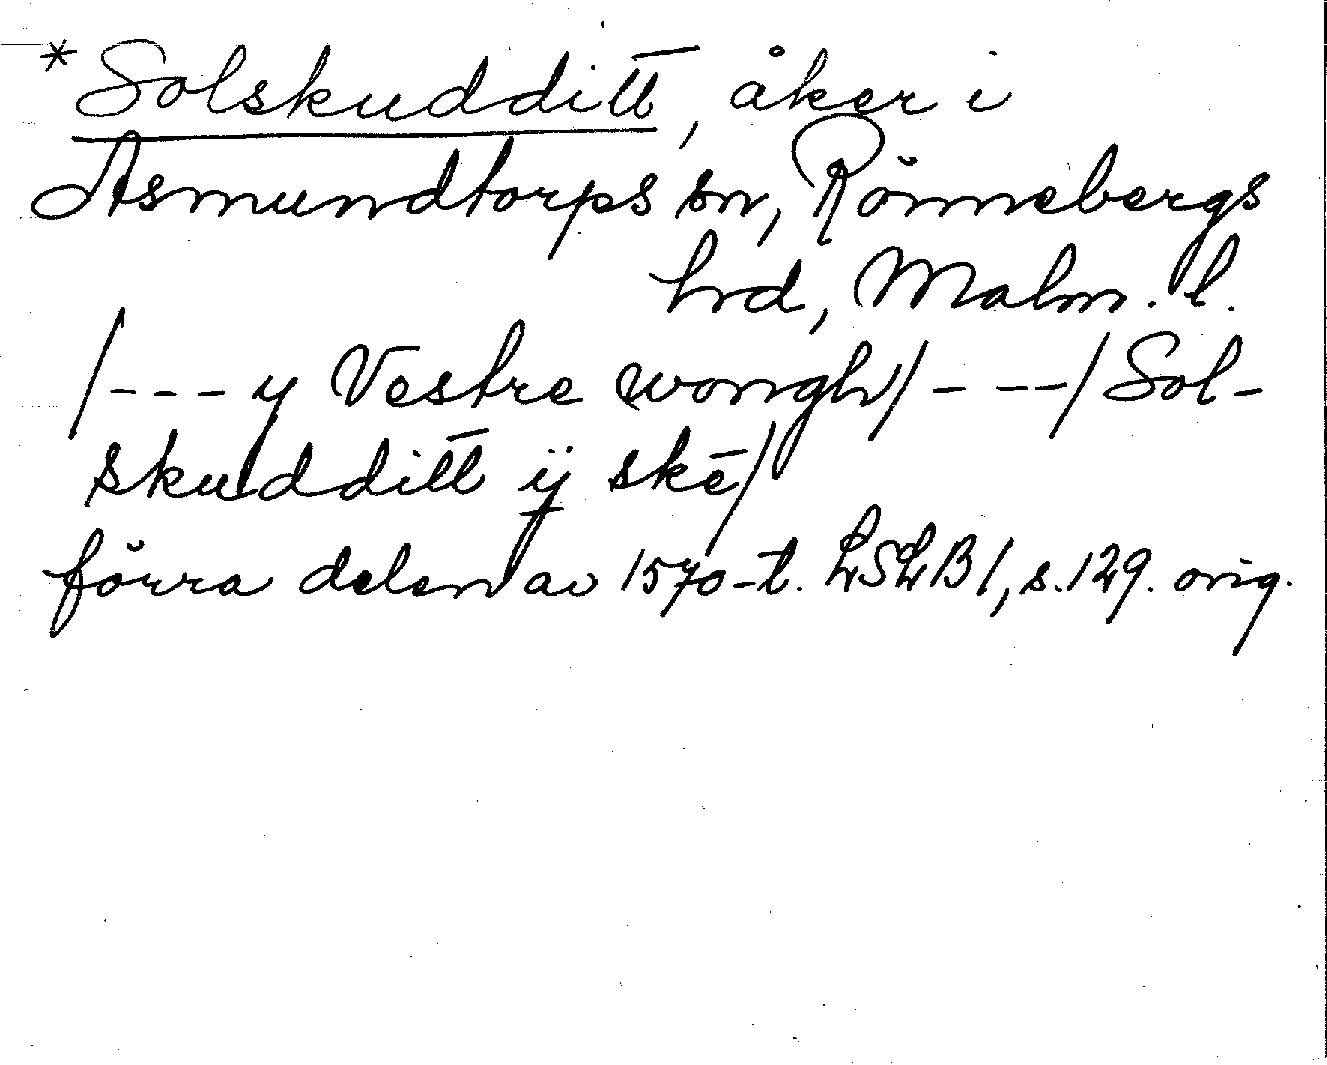 *Solskudditt, åker i
Asmundtorps sn, Rönnebergs
hrd, Malm. l.
/--- y Vestre wongh/ - --/ Sol-
skudditt ij skē/
förra delen av 1570-t. LSLB1, s. 129. orig.